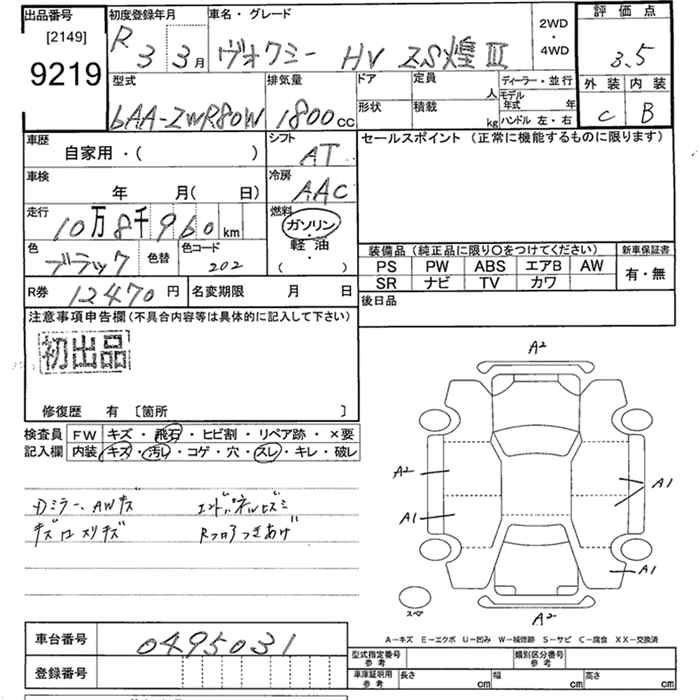 出品番号
[2149]
9219
初度登録年月
R 3 3月
車名・グレード
ヴォクシー HV ZS煌Ⅲ
2WD
・
4WD
評価点
3.5
外装 内装
C B
型式
6AA-ZWR80W
排気量
1800cc
ドア
定員
人
形状
積載
kg
ディーラー・並行
モデル年式 年
ハンドル 左・右
車歴
自家用・( )
シフト
AT
車検
年 月( 日)
冷房
AAC
走行
10万8千960km
燃料
ガソリン
軽油
( )
色
ブラック
色替
色コード
202
R券 12470円
名変期限 月 日
セールスポイント (正常に機能するものに限ります)
装備品(純正品に限り〇をつけてください)
新車保証書
PS PW ABS エアB AW
SR ナビ TV カワ
有・無
後日品
注意事項申告欄(不具合内容等は具体的に記入して下さい)
初出品
修復歴 有 〔箇所 〕
検査員
記入欄
FW キズ・飛石・ヒビ割・リペア跡・×要
内装 キズ・汚レ・コゲ・穴・スレ・キレ・破レ
Dミラー、AWキズ
キズ ロスリキズ
エンドパネルヒズミ
Rフロアつきあげ
A2
A2
A1
A1
A1
A2
スペア
A-キズ E-エクボ U-凹み W-補修跡 S-サビ C-腐食 XX-交換済
車台番号 0495031
登録番号
型式指定番号
参考
類別区分番号
参考
車庫証明用
参考
長さ cm
幅 cm
高さ cm